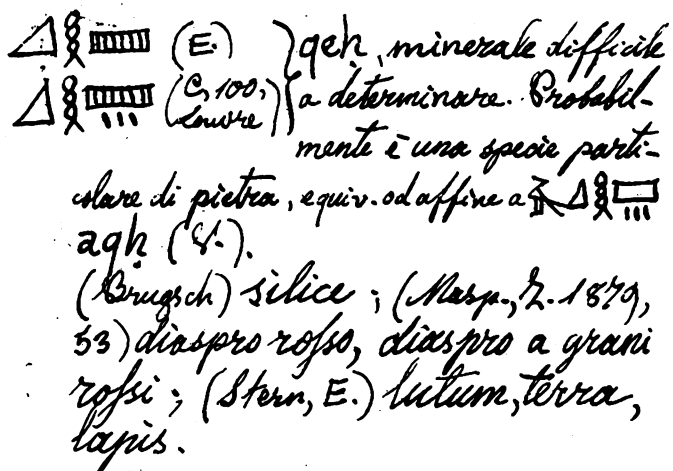 (E.) } qeḥ, minerale difficile
(C, 100, Louvre) a determinare. Probabil-
mente è una specie parti-
colare di pietra, equiv. od affine a
aqḥ (V.).
(Brugsch) silice; (Masp., Z. 1879,
53) diaspro rosso, diaspro a grani
rossi; (Stern, E.) lutum, terra,
lapis.